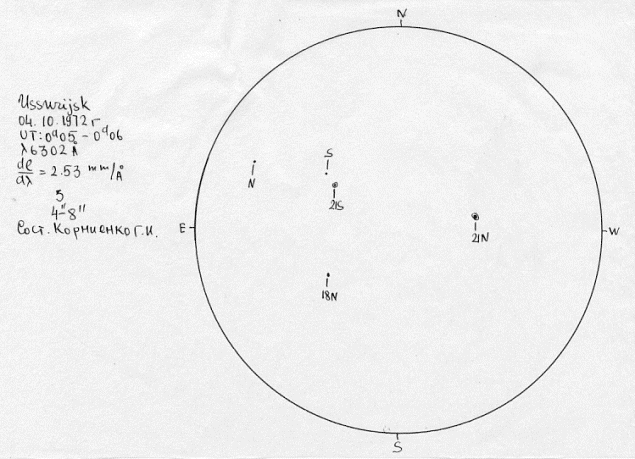 N
Ussurijsk
04.10.1972 г
UT: 0ᵈ05 - 0ᵈ06
λ 6302 Å
dl/dλ = 2.53 mm/Å
5
4"-8"
Сост. Корниенко Г.И.
E
W
S
N
S
21S
21N
18N